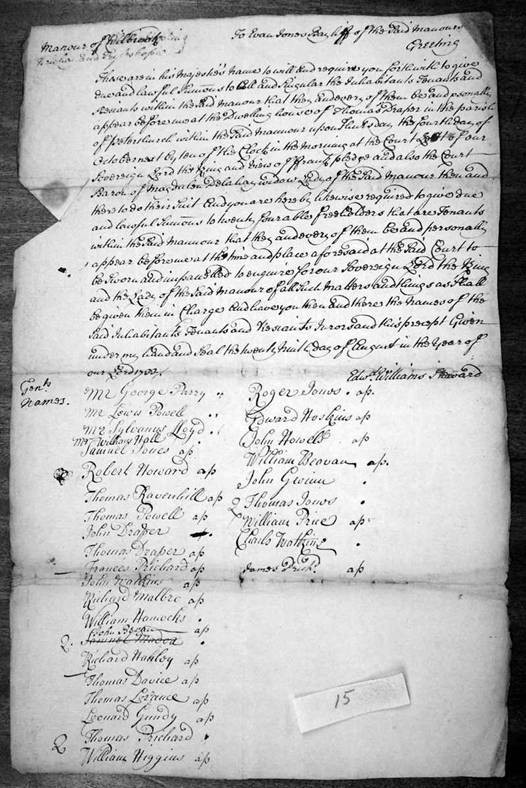 Manour of
To Evan Jones Bayliff of the Said Manour
Greeting
These are in his majesties name to will and require you forthwith to give
due and lawful Sumons to all and Singular the Inhabitants Tenants and
Resiants within the Said manour that they and every of them be and personally
appear before me at the Dwelling house of Thomas Draper in the parish
of Peterchurch within the Said manour upon Thursday the fourth day of
October next by ten of the Clock in the morning at the Court Leete of our
Sovereign Lord the King and view of Frank pledge and also the Court
Baron of Magdalen Delahay widow Lady of the Said Manour then and
there to do their Suit And you are hereby likewise required to give due
and lawful Sumons to twenty four able Freeholders that are Tenants
within the Said manour that they and every of them be and personally
appear before me at the time and place aforesaid at the Said Court to
be Sworn and impanelled to enquire for our Sovereign Lord the King
and the Lady of the Said manour of all Such matters and things as Shall
be given them in Charge And have you then and there the Names of the
Said Inhabitants Tenants and Resiants Jurors and this precept Given
under my hand and Seal the day of August in the Year of
our Lord
Edw. Williams Steward
Tents
Names.
Mr George Parry
Mr Lewis Powell
Mr Sylvanus Lloyd
Mr William Hall
Samuel Jones ap
Robert Howard ap
Thomas Ravenhill ap
Thomas Powell ap
John Draper
Thomas Draper ap
Frances Prichard ap
John Watkins ap
Richard Malbre ap
William Hancocks
John Bevan ap
Samuel
Richard ap
Thomas Davies ap
Thomas ap
Leonard Gundy ap
Thomas Prichard
William Higgins ap
Roger Jones ap.
Edward Hoskins ap
John Howells ap
William Beavan ap.
John Gwenn
Thomas Jones
William Price ap
Charls Watkins
James ap
15